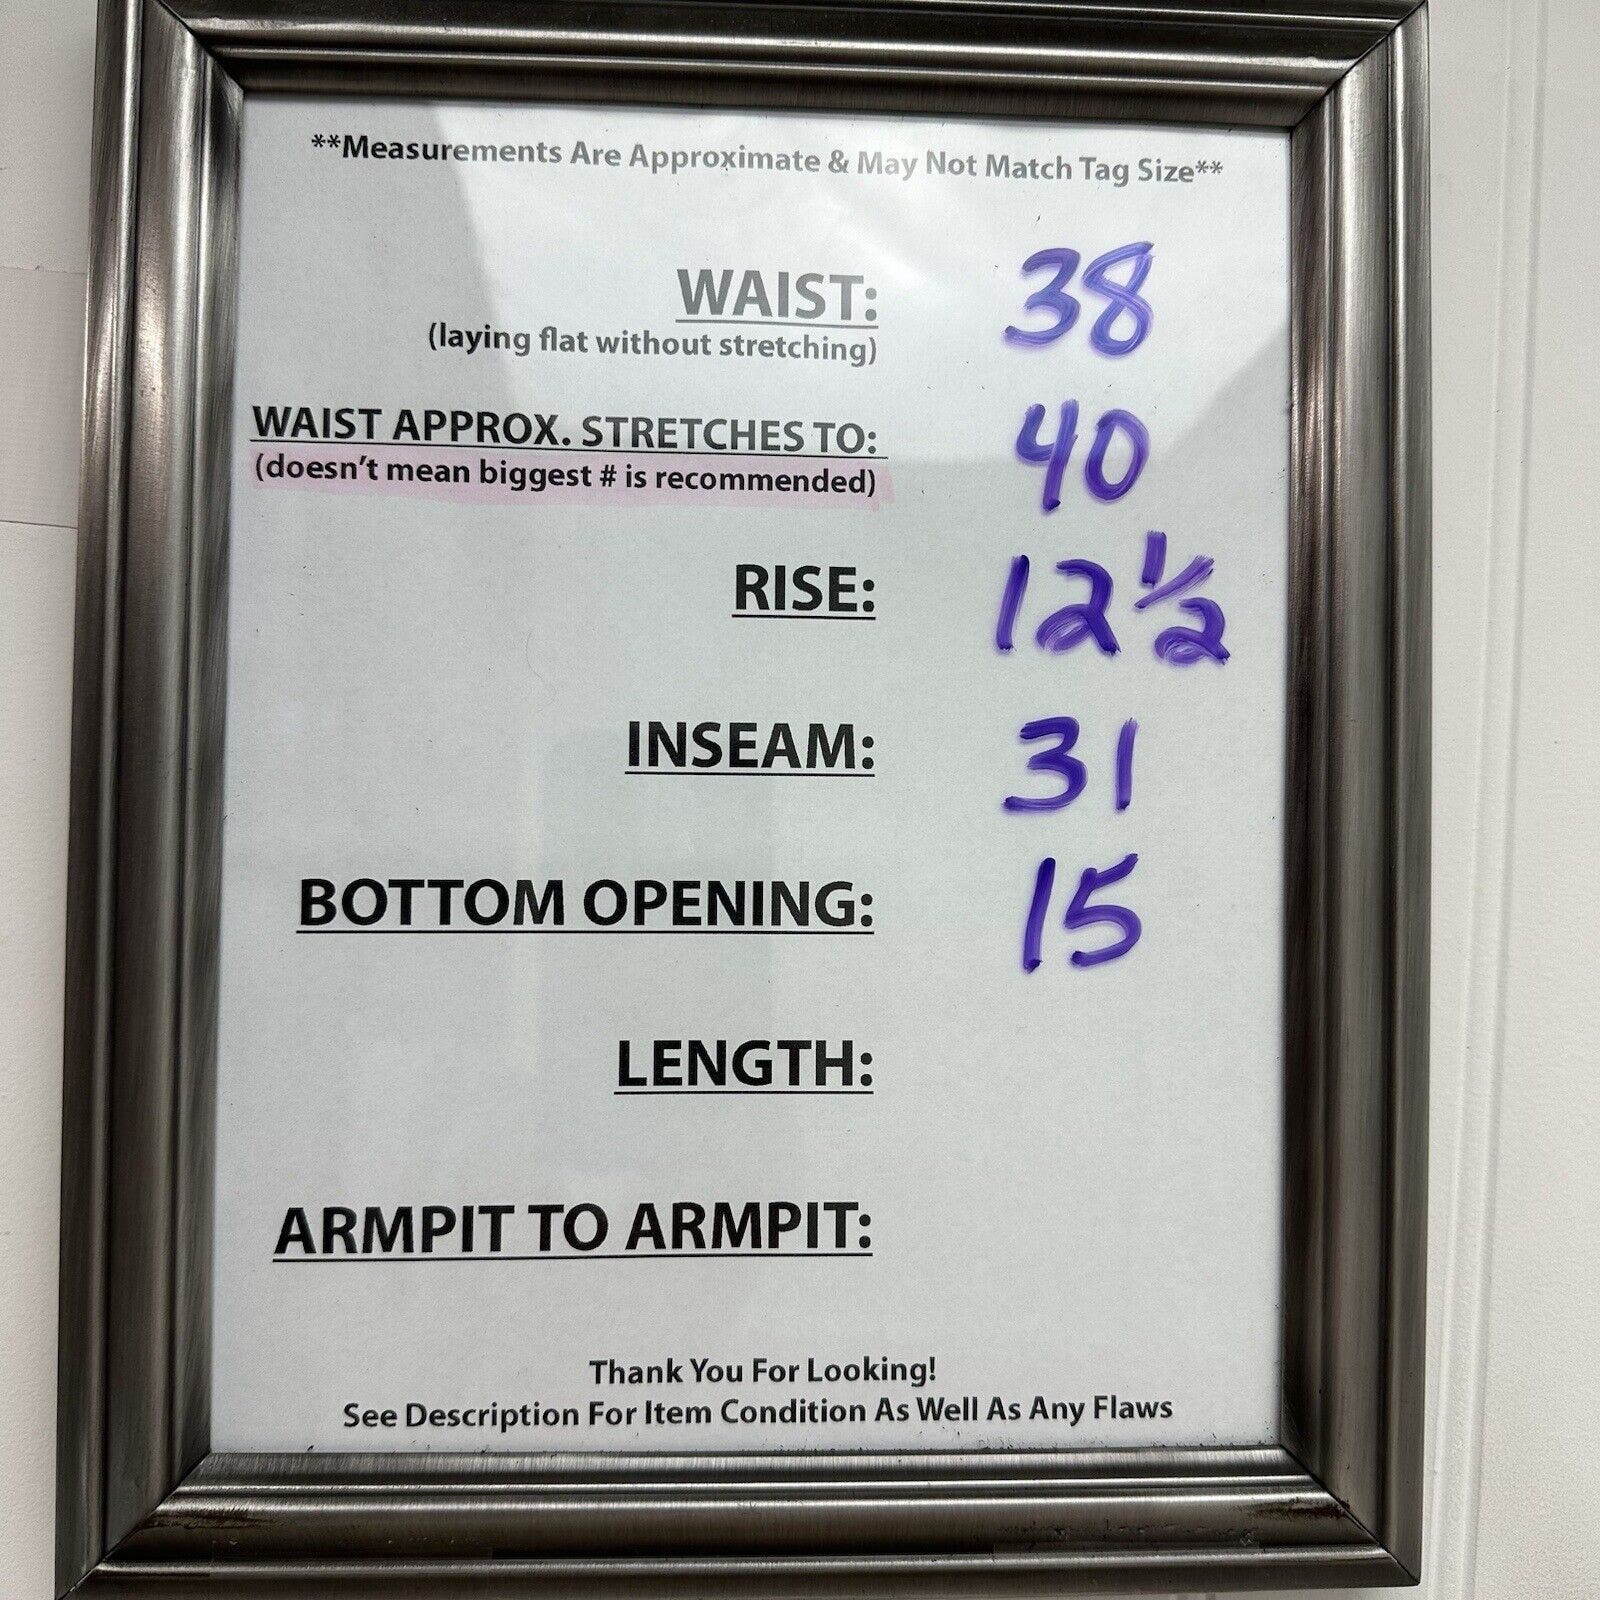 **Measurements Are Approximate & May Not Match Tag Size**
WAIST: 38
(laying flat without stretching)
WAIST APPROX. STRETCHES TO: 40
(doesn't mean biggest # is recommended)
RISE: 12 1/2
INSEAM: 31
BOTTOM OPENING: 15
LENGTH:
ARMPIT TO ARMPIT:
Thank You For Looking!
See Description For Item Condition As Well As Any Flaws